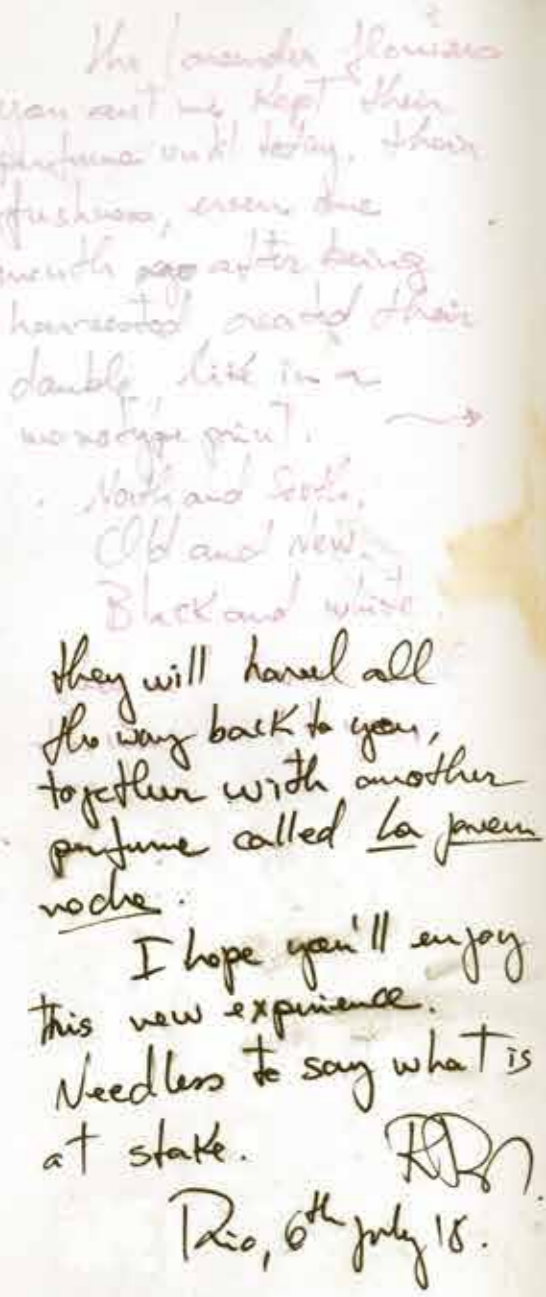 The lavender flowers
you sent me kept their
perfume until today, their
freshness, even one
month ago after being
harvested created their
double, like in a
monotype print.
North and South,
Old and New,
Black and white.
they will travel all
the way back to you,
together with another
perfume called La joven
noche.
I hope you'll enjoy
this new experience.
Needless to say what is
at stake.
Rio, 6th july 18.